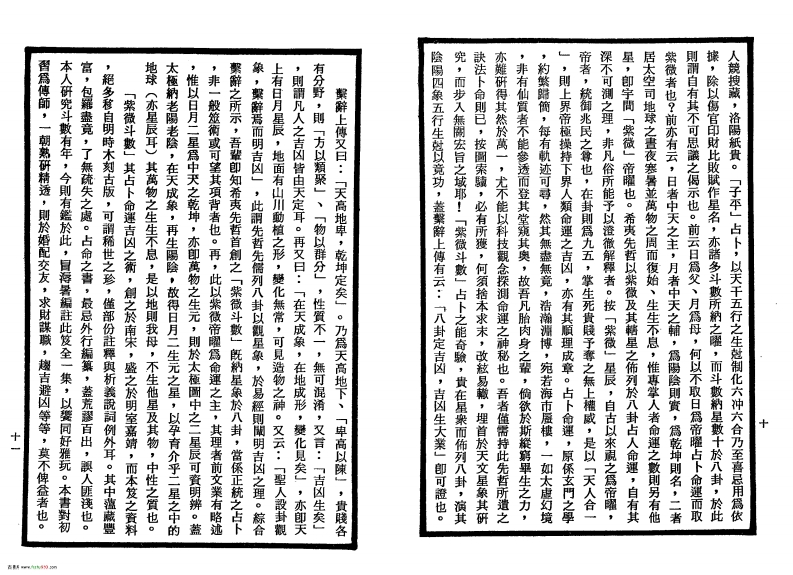 人競搜藏，洛陽紙貴。「子平」占卜，以天干五行之生尅制化六冲六合乃至喜忌用為依
據，除以傷官印財比敗賦作星名，亦諸多斗數所納之曜，而斗數納星數十於八卦，於此
則謂自有其不可思議之偈示也。前云日為父、月為母，何以不取日為帝曜占卜命運而取
紫微者也？前亦有云，日者中天之主，月者中天之輔，為陽陰則實，為乾坤則名，二者
居太空司地球之晝夜寒暑並萬物之周而復始、生生不息，惟專掌人者命運之數則另有他
星，卽宇間「紫微」帝曜也。希夷先哲以紫微及其轄星之佈列於八卦占人命運，自有其
深不可測之理，非凡俗所能予以澄徹解釋者。按「紫微」星辰，自古以來視之為帝曜，
帝者，統御兆民之尊也，在卦則為九五，掌生死貴賤予奪之無上權威，是以「天人合一
」，則上界帝極操持下界人類命運之吉凶，亦有其順理成章。占卜命運，原係玄門之學
，約繁歸簡，每有軌迹可尋，然其無盡無竟，浩瀚淵博，宛若海市蜃樓，一如太虛幻境
，非有仙質者不能參透而登其堂窺其奧，故吾凡胎肉身之輩，倘欲於斯縱窮畢生之力，
亦難研得其然於萬一，尤不能以科技觀念探測命運之神秘也。吾者僅需持此先哲所遺之
訣法卜命則已，按圖索驥，必有所獲，何須捨本求末，改絃易轍，埋首於天文星象其硏
究，而步入無關宏旨之域耶！「紫微斗數」占卜之能奇驗，貴在星衆而佈列八卦，演其
陰陽四象五行生尅以竟功，蓋繫辭上傳有云：「八卦定吉凶，吉凶生大業」卽可證也。
十
繫辭上傳又曰：「天高地卑，乾坤定矣」。乃為天高地下、「卑高以陳」，貴賤各
有分野，則「方以類聚」、「物以群分」，性質不一，無可混淆，又言：「吉凶生矣」
，則謂凡人之吉凶皆由天定耳。再又曰：「在天成象，在地成形，變化見矣」，亦卽天
上有日月星辰，地面有山川動植之形，變化無常，可見造物之神。又云：「聖人設卦觀
象，繫辭焉而明吉凶」，此謂先哲先儒列八卦以觀星象，於易經則闡明吉凶之理。綜合
繫辭之所示，吾輩卽知希夷先哲首創之「紫微斗數」旣納星象於八卦，當係正統之占卜
，非一般筮術或可望其項背者也。再，此以紫微帝曜為命運之主，其理者前文業有略述
，惟以日月二星為中天之乾坤，亦卽萬物之生元，則於太極圖中之二星辰可資明辨。蓋
太極納老陽老陰，在天成象，再生陽陰，故得日月二生元之星，以孕育介乎二星之中的
地球（亦星辰耳）其萬物之生生不息，是以地則我母，不生他星及其物，中性之質也。
「紫微斗數」其占卜命運吉凶之術，創之於南宋，盛之於明室嘉靖，而本笈之資料
，絕多移自明時木刻古版，可謂稀世之珍，僅部份註釋與析義説詞例外耳。其中蘊藏豐
富，包羅盡竟，了無疏失之處。占命之書，最忌外行編纂，蓋荒謬百出，誤人匪淺也。
本人硏究斗數有年，今則有鑑於此，冒溽暑編註此笈全一集，以饗同好雅玩。本書對初
習為傳師，一朝熟硏精透，則於婚配交友，求財謀職，趨吉避凶等等，莫不俾益者也。
十一